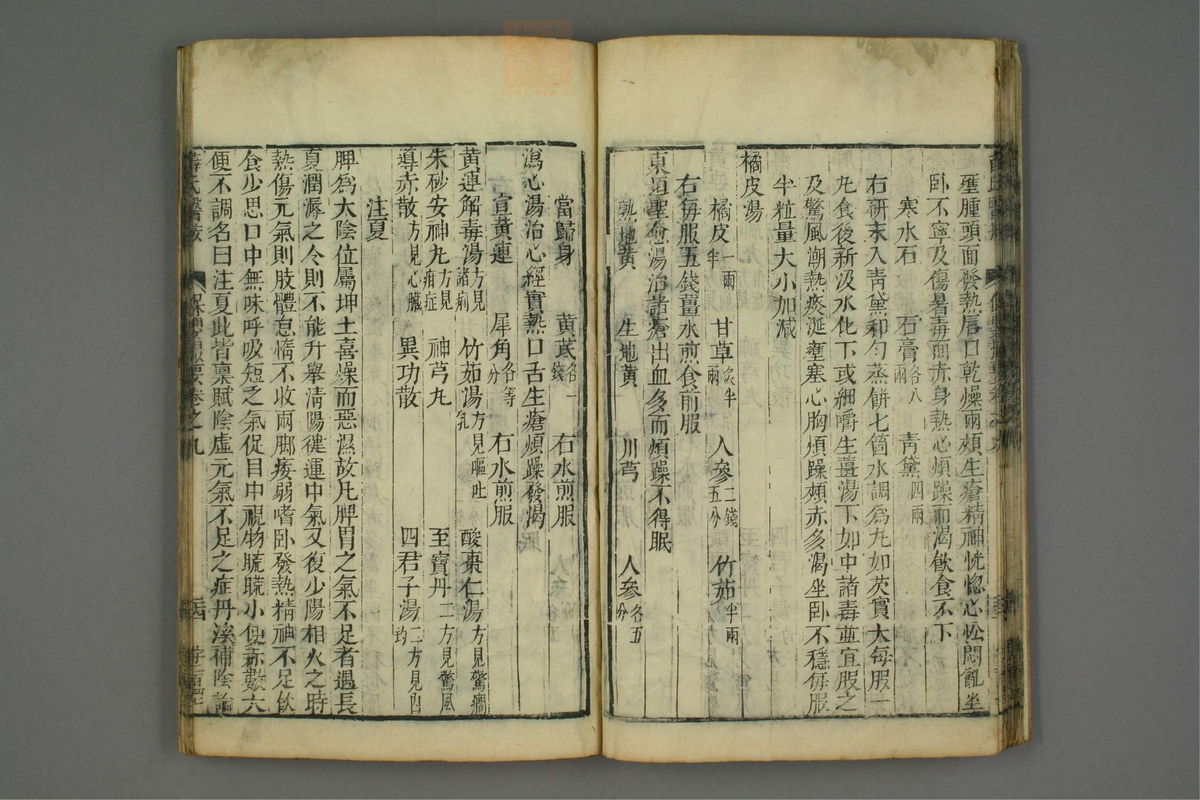 壅腫頭面發熱唇口乾燥兩頰生瘡精神恍惚心忪悶亂坐
卧不寧及傷暑毒面赤身熱心煩躁而渴飲食不下
寒水石 石膏各八兩 青黛四兩
右研末入青黛和勻蒸餅七箇水調為丸如芡實大每服一
丸食後新汲水化下或細嚼生薑湯下如中諸毒並宜服之
及驚風潮熱痰涎壅塞心胸煩躁頰赤多渴坐卧不穩每服
半粒量大小加減
橘皮湯
橘皮一兩半 甘草炙半兩 人參二錢五分 竹茹半兩
右每服五錢薑水煎食前服
東垣聖愈湯治諸瘡出血多而煩躁不得眠
熟地黃 生地黃 川芎 人參各五分
當歸身 黃芪各一錢 右水煎服
瀉心湯治心經實熱口舌生瘡煩躁發渴
宣黃連 犀角各等分 右水煎服
黃連解毒湯方見諸痢 竹茹湯方見嘔吐乳 酸棗仁湯方見驚癇
朱砂安神丸方見疳症 神芎丸 至寶丹二方見驚風
導赤散方見心臟 異功散 四君子湯二方見四
注夏
脾為太陰位屬坤土喜燥而惡濕故凡脾胃之氣不足者遇長
夏潤溽之令則不能升舉清陽健運中氣又復少陽相火之時
熱傷元氣則肢體怠惰不收兩脚痿弱嗜卧發熱精神不足飲
食少思口中無味呼吸短乏氣促目中視物䀮䀮小便赤數大
便不調名曰注夏此皆禀賦陰虛元氣不足之症丹溪補陰論
薛氏醫案 保嬰撮要卷之九